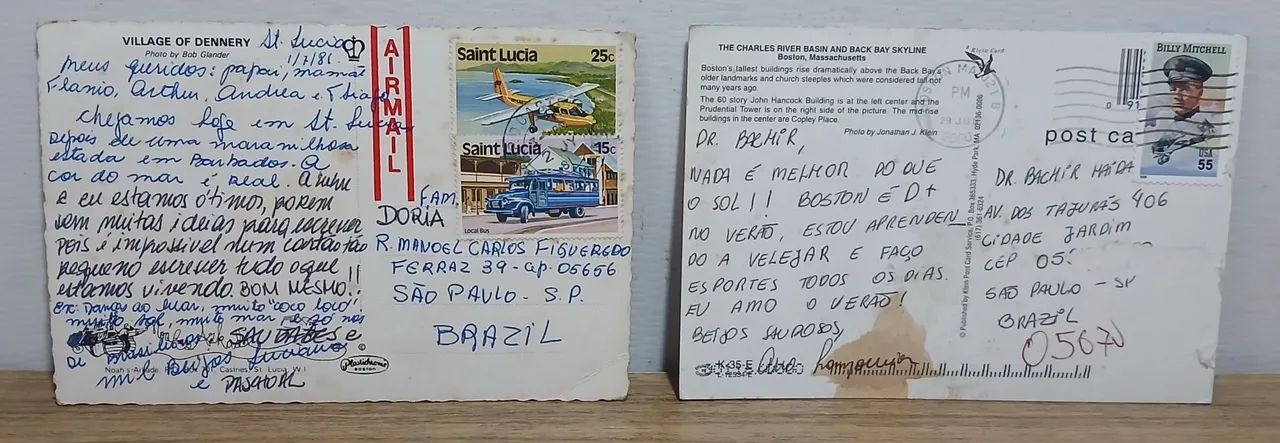 VILLAGE OF DENNERY
Photo by Bob Glander
St. Lucia
1/7/81.
Meus queridos: papai, mamãe
Flavio, Arthur, Andrea e Thiago
Chegamos hoje em St. Lucia
depois de uma maravilhosa
estada em Barbados. A
cor do mar é real. A
e eu estamos ótimos, porém
sem muitas ideias para escrever
pois é impossível num cartão tão
pequeno escrever tudo o que
estamos vivendo. BOM MESMO!!
Danças ao luar, muito "coco loco"
muito sol, muito mar e só nós
de brasileiros. SAUDADES e
mil beijos Luciano
e
Noah's Arkade, Castries, St. Lucia, W.I.
Plastichrome
BOSTON
AIRMAIL
Saint Lucia 25c
Saint Lucia 15c
Local Bus
FAM.
DORIA
R. MANOEL CARLOS FIGUEREDO
FERRAZ 39 - ap. 05656
SÃO PAULO - S.P.
BRAZIL
THE CHARLES RIVER BASIN AND BACK BAY SKYLINE
Boston, Massachusetts
Boston's tallest buildings rise dramatically above the Back Bay's
older landmarks and church steeples which were considered tall not
many years ago.
The 60 story John Hancock Building is at the left center and the
Prudential Tower is on the right side of the picture. The mid-rise
buildings in the center are Copley Place.
Photo by Jonathan J. Klein
DR. BACHIR,
NADA É MELHOR DO QUE
O SOL!! BOSTON É D+
NO VERÃO, ESTOU APRENDEN
DO A VELEJAR E FAÇO
ESPORTES TODOS OS DIAS.
EU AMO O VERÃO!
BEIJOS SAUDOSOS,
Ana
K-35-E
A Klein Card
© Published by Klein Post Card Service, P.O. Box 365333, Hyde Park, MA 02136-0006
(617) 361-6324
BOSTON MA 021
PM
0 91
post ca
BILLY MITCHELL
USA
55
DR. BACHIR HAIDA
AV. DOS TAJURÁS 406
CIDADE JARDIM
CEP 05
SÃO PAULO - SP
BRAZIL
05670